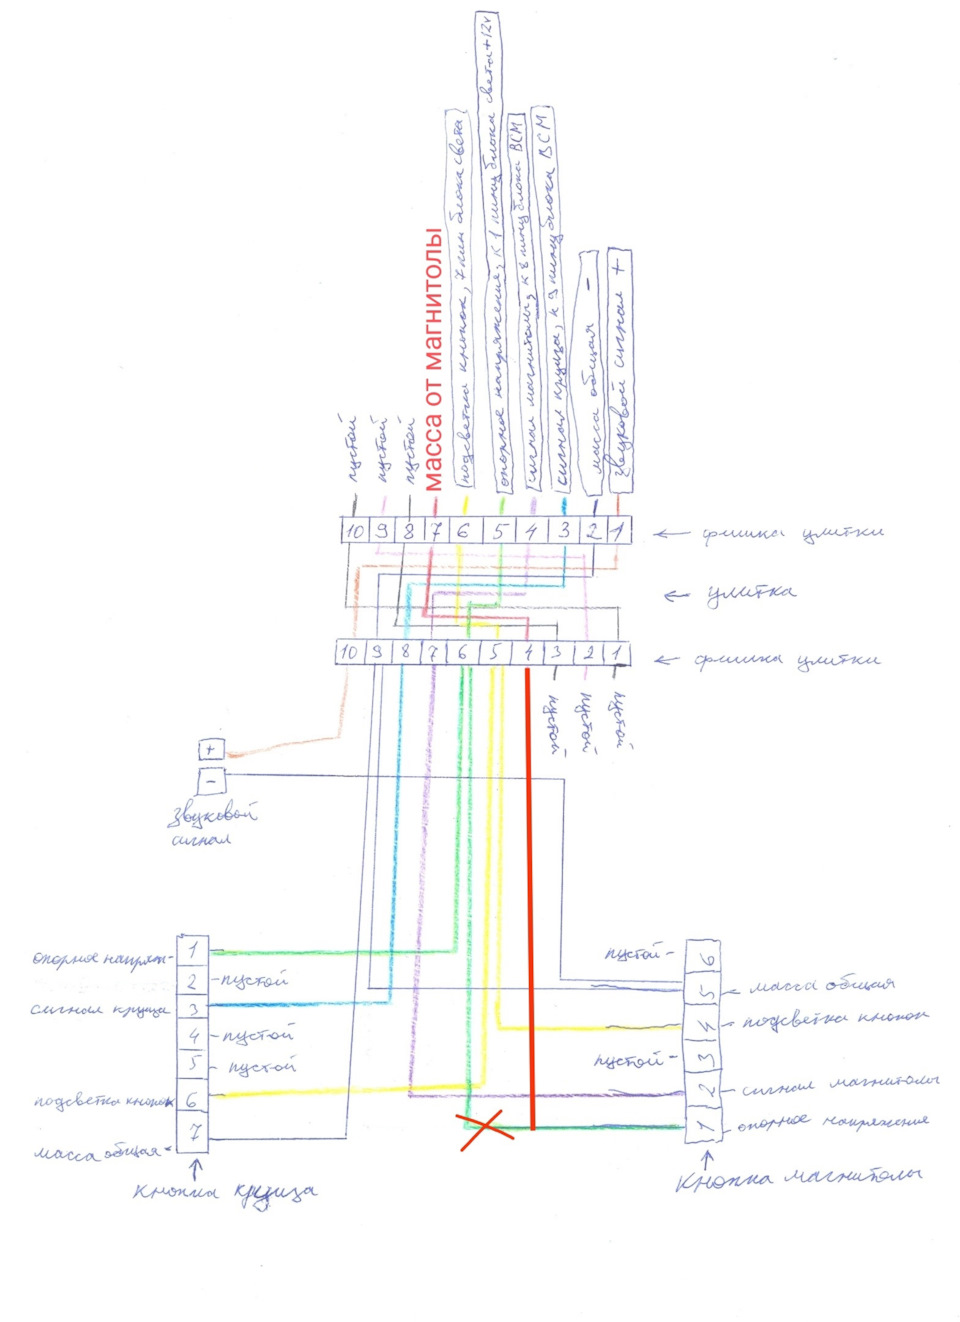 пустой
пустой
пустой
масса от магнитолы
подсветка кнопок, 7 пин блока света
опорное напряжение, к 1 пину блока света +12v
сигнал магнитолы, к 8 пину блока BCM
сигнал круиза, к 9 пину блока BCM
масса общая -
звуковой сигнал +
10 9 8 7 6 5 4 3 2 1
← фишка улитки
← улитка
10 9 8 7 6 5 4 3 2 1
← фишка улитки
пустой
пустой
пустой
+
-
звуковой
сигнал
опорное напряж- 1
2 -пустой
сигнал круиза 3
4 -пустой
5 -пустой
подсветка кнопок 6
7
масса общая
кнопка круиза
пустой- 6
5 масса общая
4 подсветка кнопок
пустой- 3
2 -сигнал магнитолы
1 -опорное напряжение
кнопка магнитолы